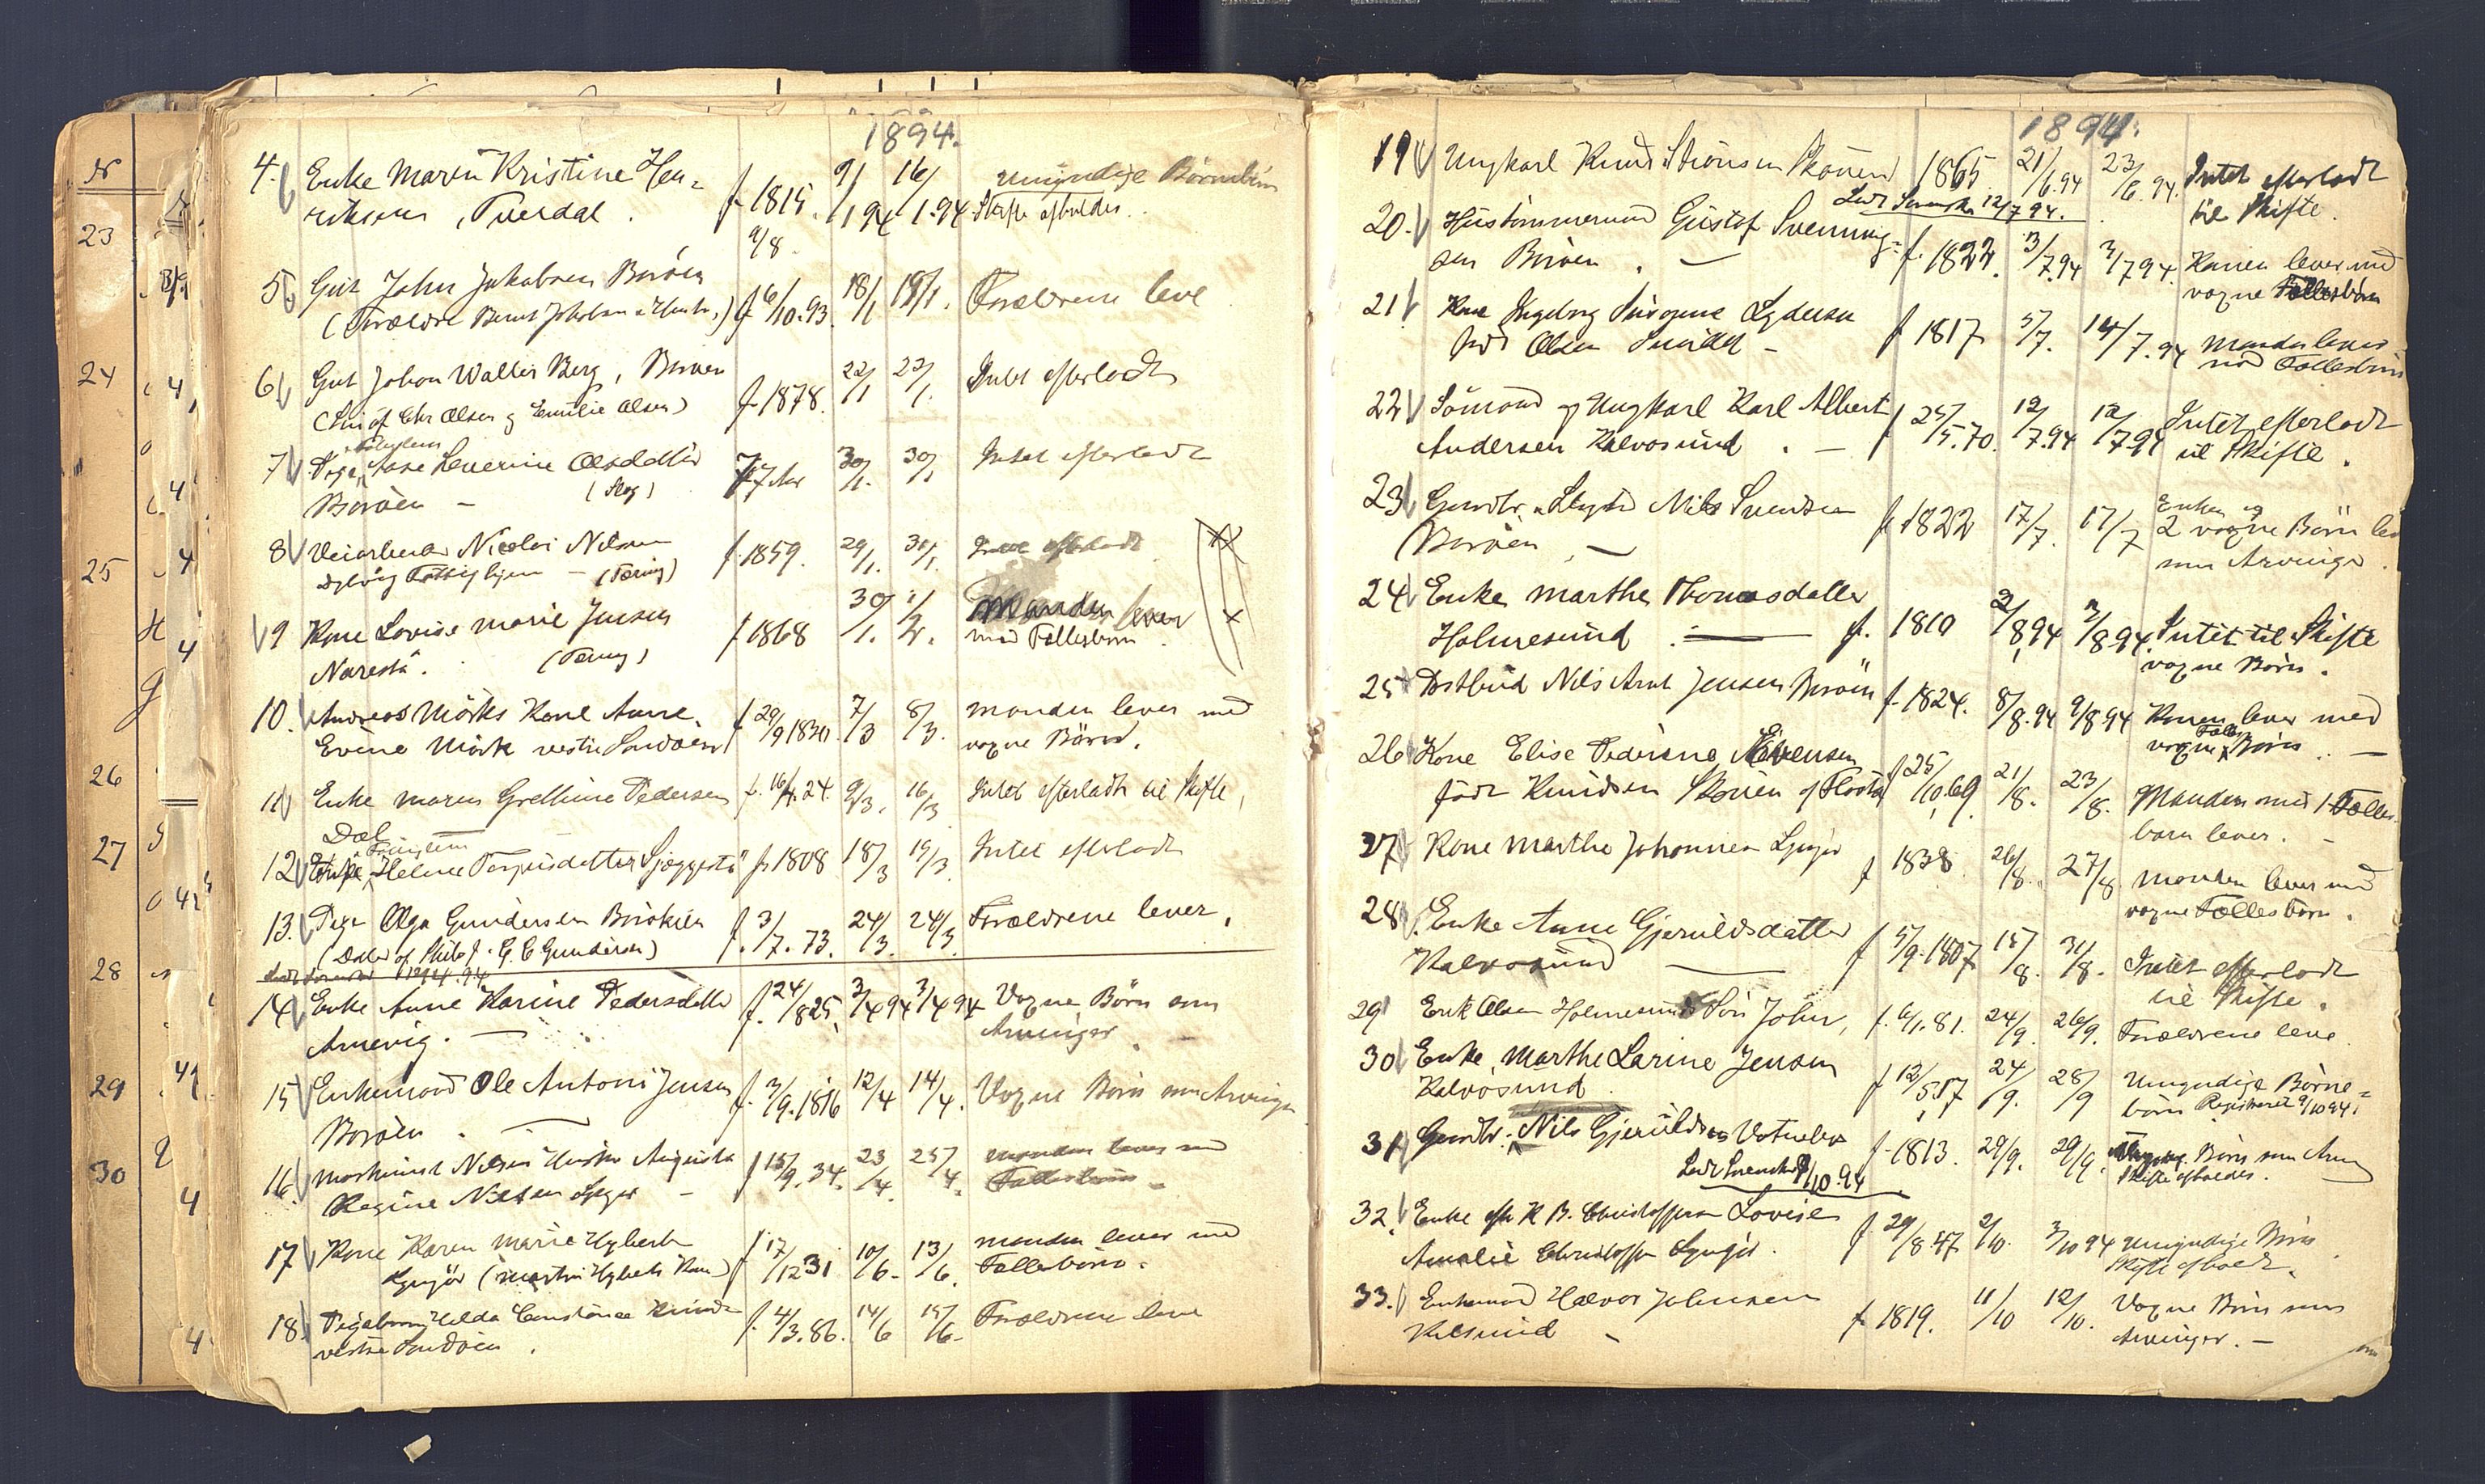 1894.
4. Enke Maren Kristine Hen-
riksen, Tverdal. f. 1815. 9/1 94 16/1.94 Umyndige Børnebørn
Skifte afholdes.
9/8
5 Gut John Jakobsen Borøen
(Forældre Bernt Jakobsen & Hustru) f 6/10.93. 18/1 19/1. Forældrene leve
6 Gut Johan Walter Berg, Borøen
(Søn af Chr Olsen og Emilie Olsen) f. 1878. 22/1 23/1. Intet efterladt
7 Pige, Aase Severine Olsdatter
Borøen – 77 Aar 30/1. 30/1 Intet efterladt
8 Veiarbeider Nicolai Nilsen
Dybvåg Fattighjem – (Tæring) f. 1859. 29/1. 30/1. Intet efterladt
9 Kone Lovise Marie Jensen
Narestø. (Tæring) f 1868 30/1. 1/2. Manden lever
med Fællesbørn.
10. Andreas Mørks Kone Anne
Evine Mørk vestre Sandøen f 29/9 1830. 7/3 8/3. Manden lever med
voxne Børn.
11 Enke Maren Grethine Pedersen f. 16/4.24. 9/3. 16/3 Intet efterladt til Skifte,
Dal
12 Enke, Helene Terjusdatter f. 1808 18/3 19/3 Intet efterladt
13. Pige Olga Gundersen
(Datter af Skibsf. G. C Gundersen) f. 3/7. 73. 24/3. 24/3. Forældrene lever.
14 Enke Anne Karine Pedersdatter
Arnevig. – f. 24/8 25, 3/4 94 3/4 94 Voxne Børn som
Arvinger
15 Enkemand Ole Antoni Jensen
Borøen. f. 3/9.1816 12/4 14/4. Voxne Børn som Arvinger
16. Maskinist Nilsens Hustru Augusta
Regine Nilsen Lyngør – f 15/9. 34. 23/4. 25/4. Manden lever med
Fællesbørn –
17 Kone Karen Marie Nyberth
Lyngør (Martin Nyberts Kone) f 17/12 31 10/6 – 13/6. Manden lever med
Fællesbørn.
18. Pigebarn Hilda Constance
vestre Sandøen. f. 4/3.86. 14/6 15/6 – Forældrene leve
1894.
19 Ungkarl Knud 1865. 21/6.94 23/6.94. Intet efterladt
til Skifte.
12/7 94.
20. Hustømmermand Gustaf Svenning-
sen Borøen. – f. 1822. 3/7.94 3/7 94. Konen lever med
voxne Fællesbørn
21 Kone Ingeborg Lydersen
født Olsen – f 1817 5/7. 14/7. 94 Manden lever
med Fællesbørn
22 Sømand og Ungkarl Karl Albert
Andersen Kalvøsund. – f 25/5.70. 12/7.94 12/7 94 Intet efterladt
til Skifte.
23 Gaardbr. Nils Svendsen
Borøen – f. 1822 17/7. 17/7 Enken og
2 voxne Børn
som Arvinger.
24 Enke Marthe Thomasdatter
Holmesund. f. 1810 2/8,94 2/8 94. Intet til Skifte
voxne Børn.
25 Postbud Nils Arnt Jensen Borøen f. 1824. 8/8.94 9/8 94 Konen lever med
voxne Fælles Børn. –
26 Kone Elise Pedrine Evensen
født Knudsen f 25/10,69. 21/8. 23/8. Manden med 1 Fælles-
barn lever. –
27 Kone Marthe Johannea Lyngør f 1838 26/8. 27/8. Manden lever med
voxne Fællesbørn.
28 Enke Anne Gjeruldsdatter
Kalvøsund – f 5/9.1807 15/8. 31/8. Intet efterladt
til Skifte.
29 Erik Olsen Holmesunds Søn John, f. 6/1.81. 24/9. 26/9. Forældrene leve
30 Enke, Marthe Larine Jensen
Kalvøsund. f 12/5.17 24/9. 28/9 Umyndige Børne-
børn Registreret 9/10 94.
31 Gaardbr. Nils Gjeruldsen f. 1813. 29/9. 29/9. Børn som
Skifte afholdes.
9/10.94
32. Enke eft K B. Christoffersen Lovise
Amalie Christoffersen Lyngør. f. 29/8.47 2/10. 3/10 94 Umyndige Børn
Skifte afholdt.
33. Enkemand Halvor Johnsen
Kilsund – f. 1819. 11/10 12/10. Voxne Børn som
Arvinger. –
N
23
24
25
26
27
28
29
30